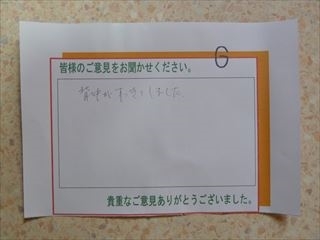 G
皆様のご意見をお聞かせください。
背中がすっきりしました。
貴重なご意見ありがとうございました。